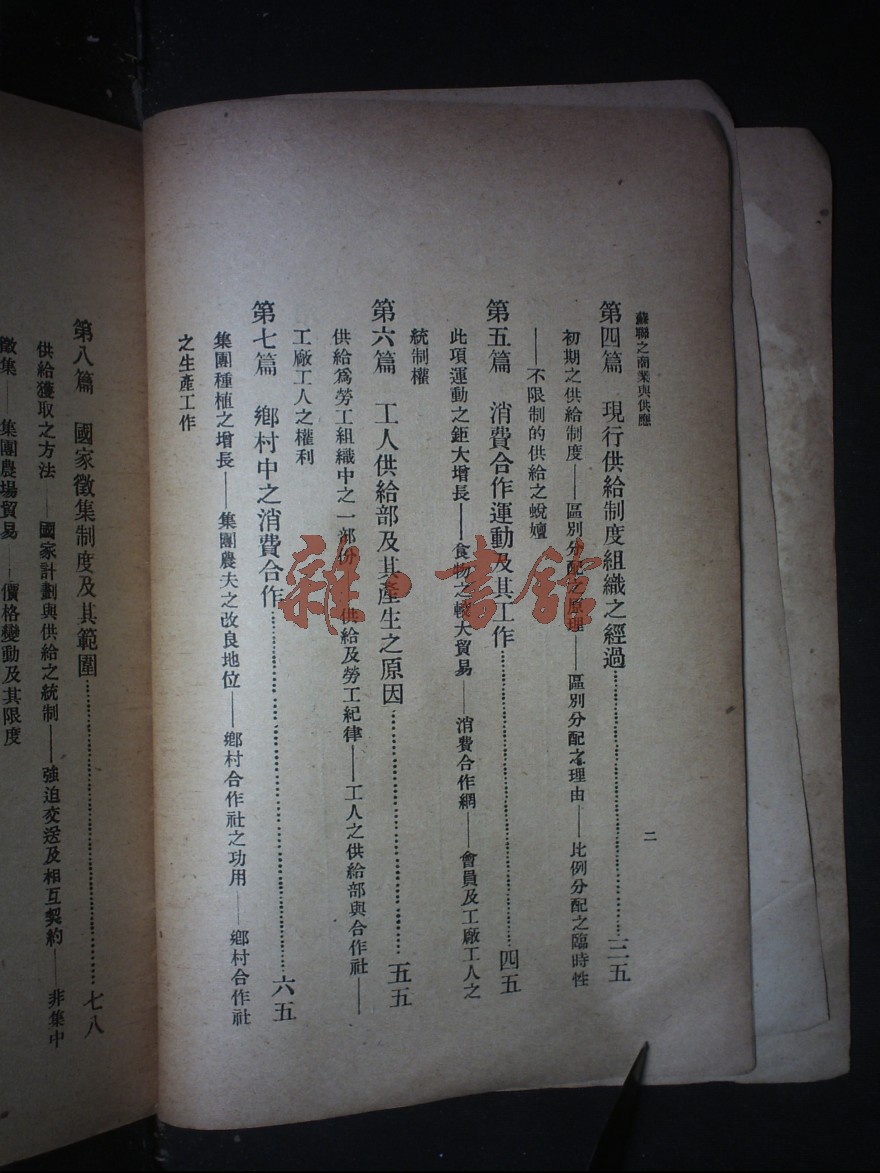 蘇聯之商業與供應
二
第四篇　現行供給制度組織之經過……三五
初期之供給制度——區別分配之原理——區別分配之理由——比例分配之臨時性
——不限制的供給之蛻嬗
第五篇　消費合作運動及其工作……四五
此項運動之鉅大增長——食物之較大貿易——消費合作網——會員及工廠工人之
統制權
第六篇　工人供給部及其產生之原因……五五
供給爲勞工組織中之一部份——供給及勞工紀律——工人之供給部與合作社——
工廠工人之權利
第七篇　鄉村中之消費合作……六五
集團種植之增長——集團農夫之改良地位——鄉村合作社之功用——鄉村合作社
之生產工作
第八篇　國家徵集制度及其範圍……七八
供給獲取之方法——國家計劃與供給之統制——強迫交送及相互契約——非集中
徵集——集團農場貿易——價格變動及其限度
雜·書館